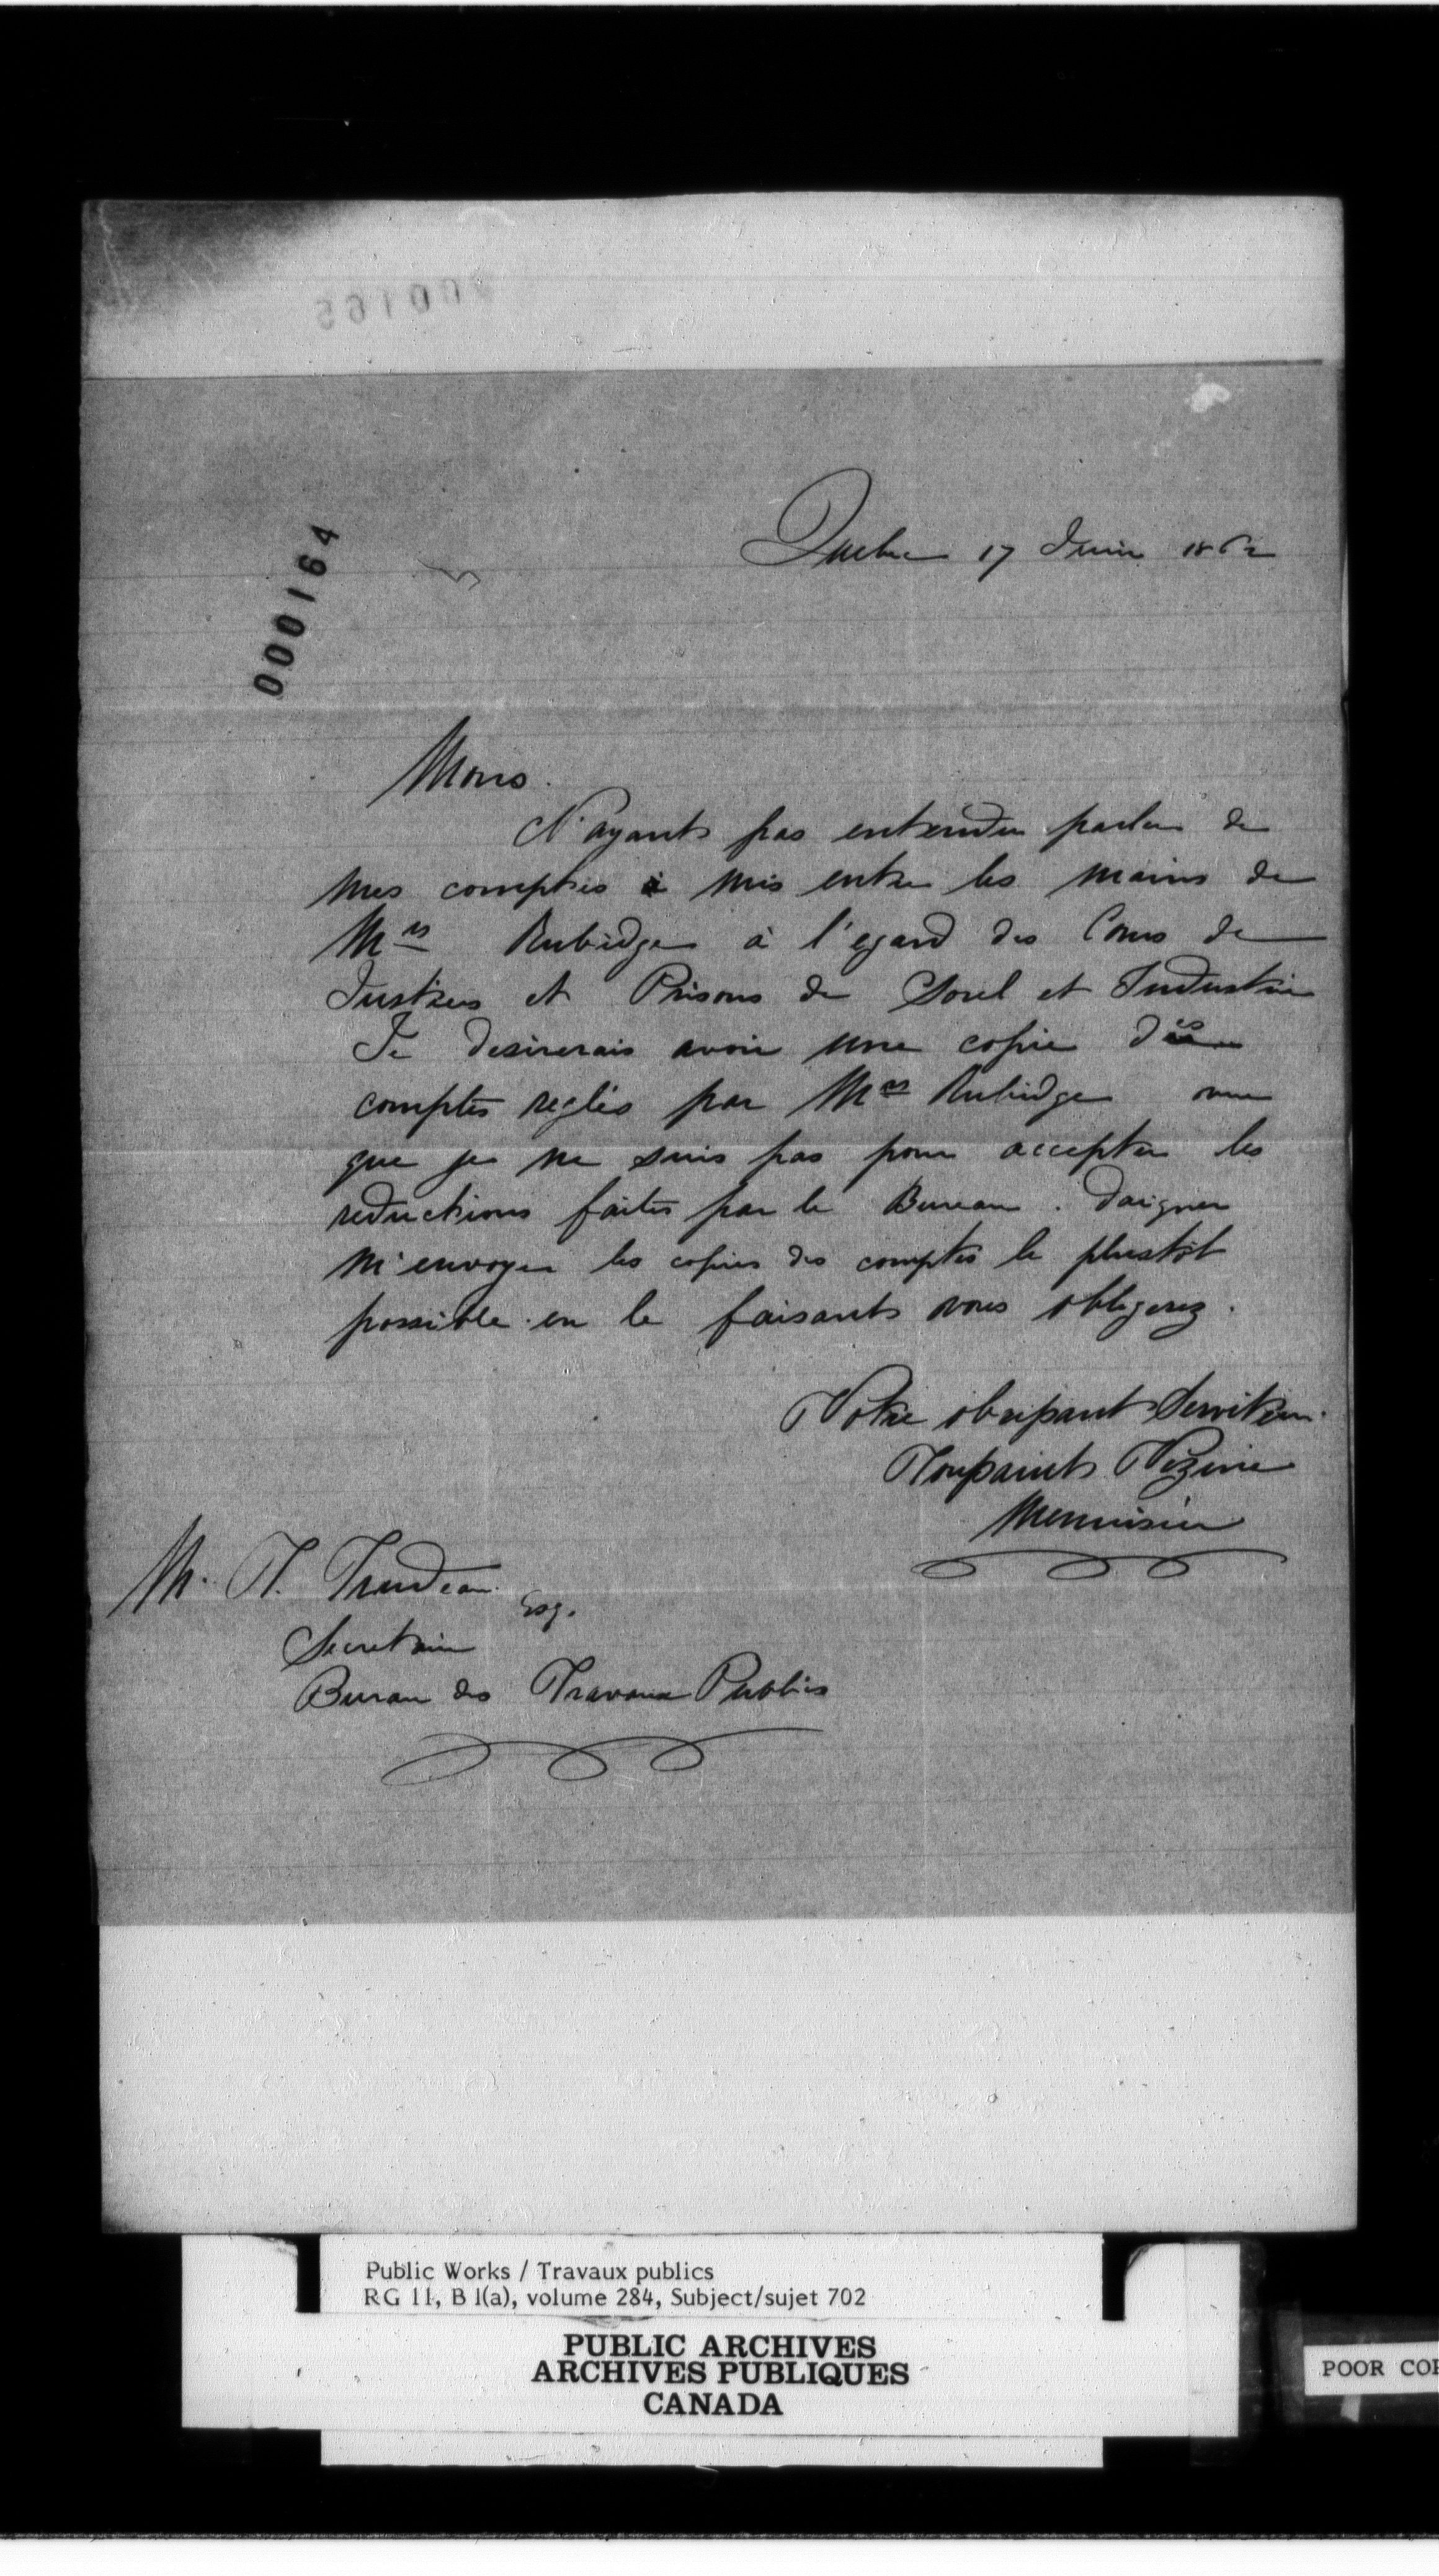 000165
Quebec 17 Juin 1862
000164
Mons.
N'ayants pas entendu parler de
mes comptes à mis entre les mains de
Mrs Rubidge à l'egard des Cours de
Justices et Prisons de Sorel et Industrie
Je desirerais avoir une copie des
comptes reglés par Mrs Rubidge vue
que je ne suis pas pour accepter les
reductions faites par le Bureau. daigner
m'envoyer les copies des comptes le plustôt
possible. en le faisants vous obligerez.
Votre obeissant Serviteur.
Toussaints Vezina
Menuisier
Mr. T. Trudeau. Esq.
Secretaire
Bureau des Travaux Publics
Public Works / Travaux publics
RG 11, B 1(a), volume 284, Subject/sujet 702
PUBLIC ARCHIVES
ARCHIVES PUBLIQUES
CANADA
POOR COP